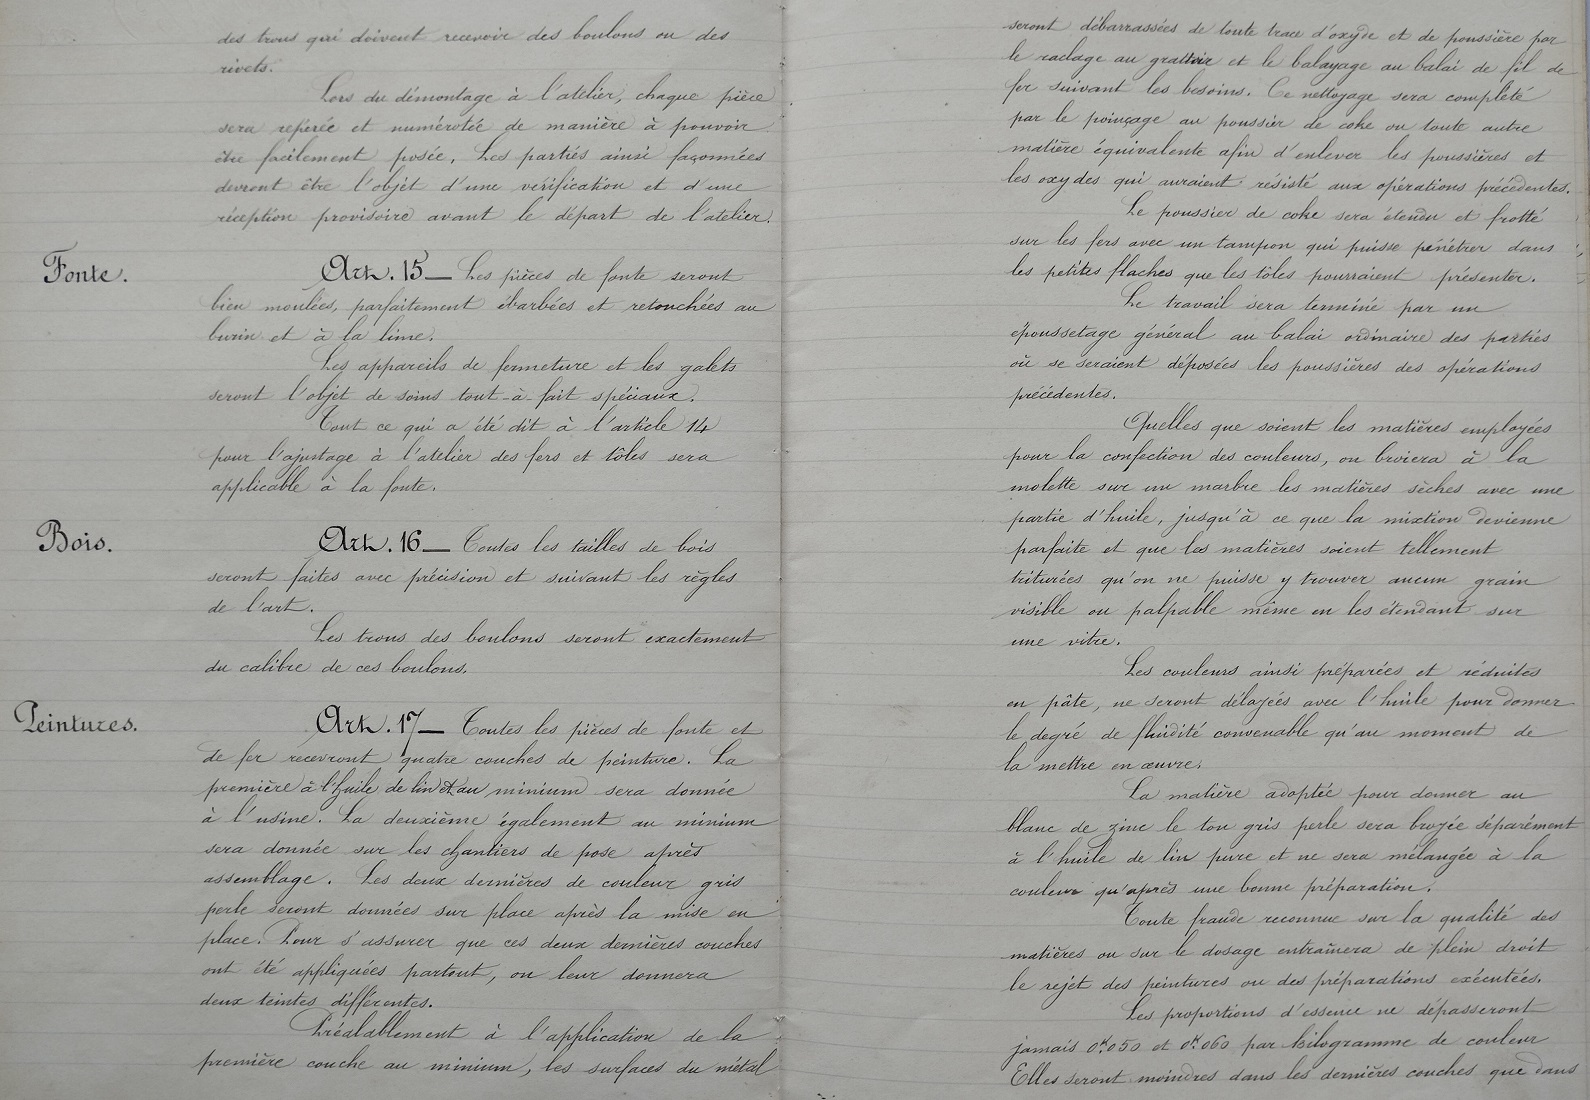 des trous qui doivent recevoir des boulons ou des
rivets.
Lors du démontage à l'atelier, chaque pièce
sera repérée et numérotée de manière à pouvoir
être facilement posée. Les parties ainsi façonnées
devront être l'objet d'une vérification et d'une
réception provisoire avant le départ de l'atelier.
Fonte.
Art. 15 — Les pièces de fonte seront
bien moulées, parfaitement ébarbées et retouchées au
burin et à la lime.
Les appareils de fermeture et les galets
seront l'objet de soins tout-à-fait spéciaux.
Tout ce qui a été dit à l'article 14
pour l'ajustage à l'atelier des fers et tôles sera
applicable à la fonte.
Bois.
Art. 16 — Toutes les tailles de bois
seront faites avec précision et suivant les règles
de l'art.
Les trous des boulons seront exactement
du calibre de ces boulons.
Peintures.
Art. 17 — Toutes les pièces de fonte et
de fer recevront quatre couches de peinture. La
première à l'huile de lin et au minium sera donnée
à l'usine. La deuxième également au minium
sera donnée sur les chantiers de pose après
assemblage. Les deux dernières de couleur gris
perle seront données sur place après la mise en
place. Pour s'assurer que ces deux dernières couches
ont été appliquées partout, on leur donnera
deux teintes différentes.
Préalablement à l'application de la
première couche au minium, les surfaces du métal
seront débarrassées de toute trace d'oxyde et de poussière par
le raclage au grattoir et le balayage au balai de fil de
fer suivant les besoins. Ce nettoyage sera complété
par le poinçage au poussier de coke ou toute autre
matière équivalente afin d'enlever les poussières et
les oxydes qui auraient résisté aux opérations précédentes.
Le poussier de coke sera étendu et frotté
sur les fers avec un tampon qui puisse pénétrer dans
les petites flaches que les tôles pourraient présenter.
Le travail sera terminé par un
époussetage général au balai ordinaire des parties
où se seraient déposées les poussières des opérations
précédentes.
Quelles que soient les matières employées
pour la confection des couleurs, on broiera à la
molette sur un marbre les matières sèches avec une
partie d'huile, jusqu'à ce que la mixtion devienne
parfaite et que les matières soient tellement
triturées qu'on ne puisse y trouver aucun grain
visible ou palpable même en les étendant sur
une vitre.
Les couleurs ainsi préparées et réduites
en pâte, ne seront délayées avec l'huile pour donner
le degré de fluidité convenable qu'au moment de
la mettre en œuvre.
La matière adoptée pour donner au
blanc de zinc le ton gris perle sera broyée séparément
à l'huile de lin pure et ne sera mélangée à la
couleur qu'après une bonne préparation.
Toute fraude reconnue sur la qualité des
matières ou sur le dosage entraînera de plein droit
le rejet des peintures ou des préparations exécutées.
Les proportions d'essence ne dépasseront
jamais 0k.050 et 0k.060 par kilogramme de couleur
Elles seront moindres dans les dernières couches que dans